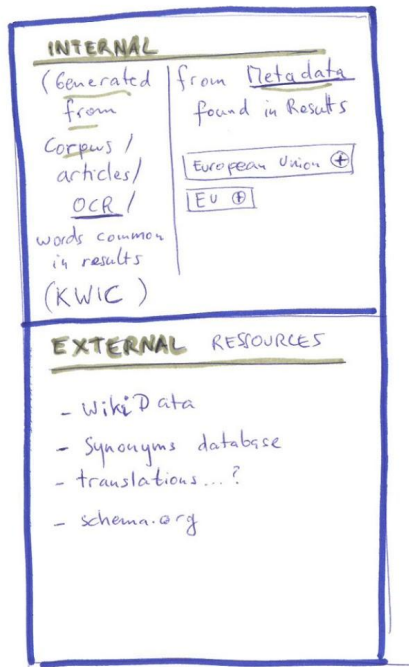 INTERNAL
(Generated
from
Corpus /
articles/
OCR /
words common
in results
(KWIC )
from Metadata
found in Results
European Union ⊕
EU ⊕
EXTERNAL RESSOURCES
- WikiData
- Synonyms database
- translations...?
- schema.org